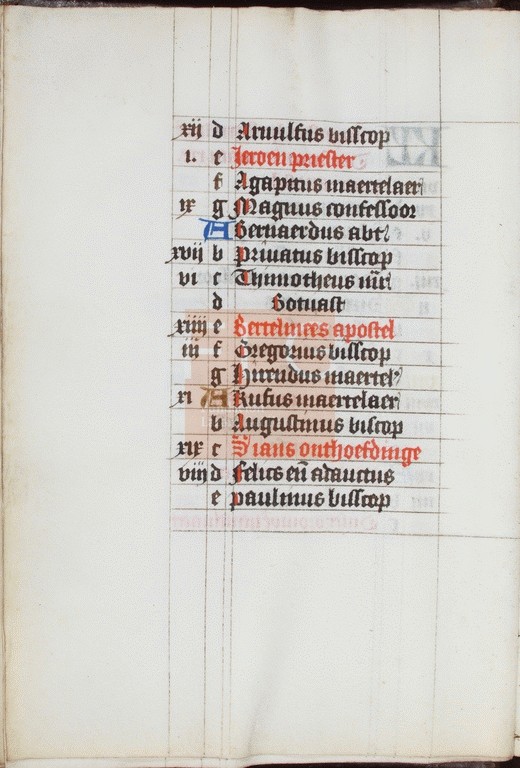 xij d Arnulfus bisscop
i. e Jeroen priester
f Agapitus maertelaer
ix g Magnus confessoor
A Bernaerdus abt
xvij b Privatus bisscop
vi c Thimotheus
d Sotuast
xiiij e Bertelmees apostel
iij f Gregorius bisscop
g maertel
xi A Rufus maertelaer
b Augustinus biscop
xix c S ians onthoefdinge
viij d Felics eñ adauctus
e paulinus bisscop